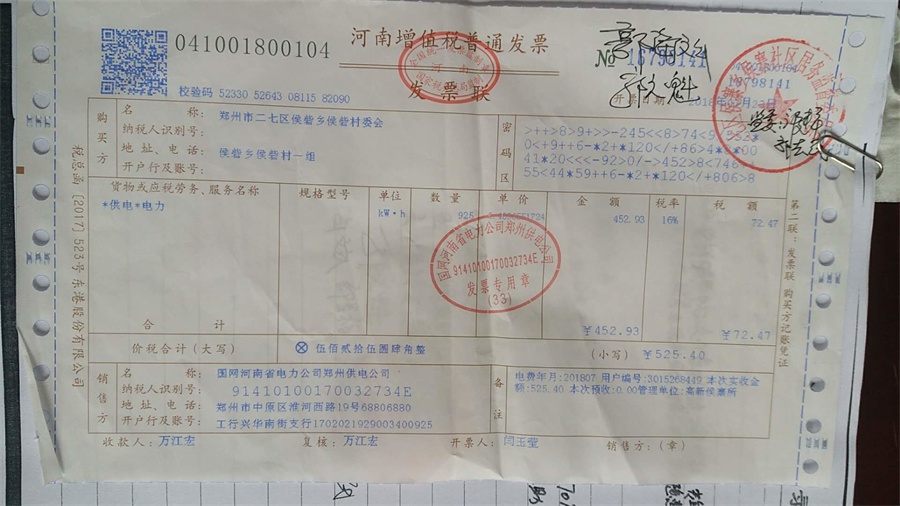 041001800104
河南增值税普通发票
发票联
№ 18798141
041001800104
18798141
校验码 52330 52643 08115 82090
开票日期
购买方
名 称: 郑州市二七区侯砦乡侯砦村委会
纳税人识别号:
地址、电话: 侯砦乡侯砦村一组
开户行及账号:
密码区
货物或应税劳务、服务名称 规格型号 单位 数量 单价 金额 税率 税额
*供电*电力 kW·h 925 452.93 16% 72.47
合计 ¥452.93 ¥72.47
价税合计(大写) ⊗ 伍佰贰拾伍圆肆角整 (小写) ¥525.40
销售方
名 称: 国网河南省电力公司郑州供电公司
纳税人识别号: 91410100170032734E
地址、电话: 郑州市中原区淮河西路19号68806880
开户行及账号: 工行兴华南街支行1702021929003400925
备注
电费年月:201807 用户编号:3015268449 本次实收金
额:525.40 本次预收:0.00管理单位:高新侯寨所
收款人: 万江宏 复核: 万江宏 开票人: 闫玉莹 销售方:(章)
国网河南省电力公司郑州供电公司
91410100170032734E
发票专用章
(33)
税总函[2017]523号东港股份有限公司
第二联:发票联 购买方记账凭证